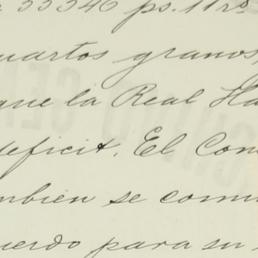 33346 ps. 1 rs
uartos granos,
que la Real Ha
deficit. El Con
mbien se comu
uerdo para su